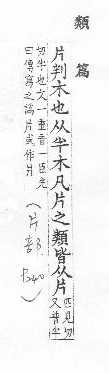 類篇
片判木也从半木凡片之類皆从片
匹見切
又普半
切半也文一重音一
曰傳寫之譌片或作爿
(片部 P240)